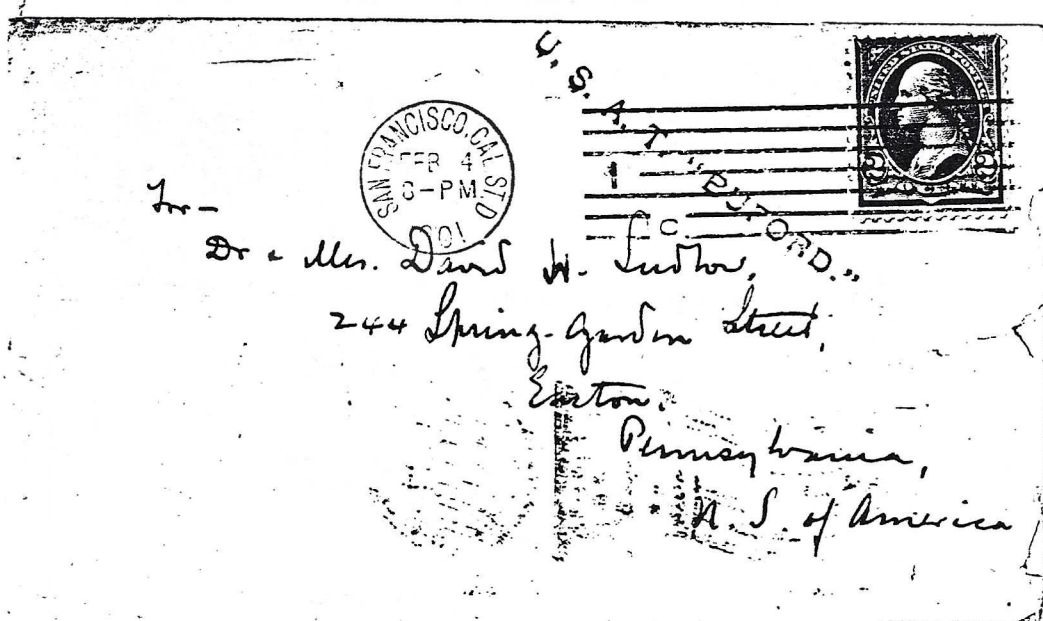 U.S.A.T. "BUFORD."
UNITED STATES POSTAGE
2 2
SAN FRANCISCO, CAL. ST'D
FEB 4
8-PM
1901
1
C
For-
Dr & Mrs. David W. Ludlow,
244 Spring-Garden Street,
Easton,
Pennsylvania,
U. S. of America